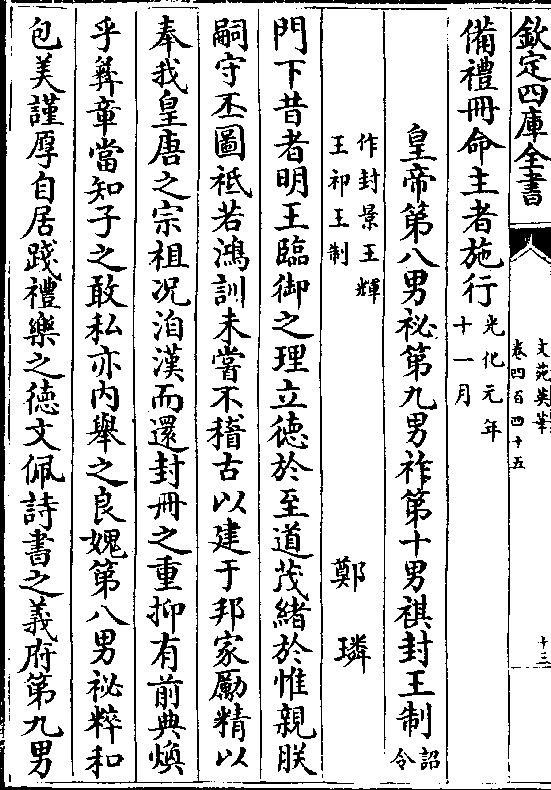 欽定四庫全書
文苑英華
卷四百四十五
十三
備禮冊命主者施行光化元年
十一月
皇帝第八男祕第九男祚第十男祺封王制詔
令
作封景王輝
王祁王制
鄭璘
門下昔者明王臨御之理立德於至道茂緒於惟親朕
嗣守丕圖祗若鴻訓未嘗不稽古以建于邦家勵精以
奉我皇唐之宗祖況洎漢而還封冊之重抑有前典煥
乎彝章當知子之敢私亦內舉之良媿第八男祕粹和
包美謹厚自居踐禮樂之德文佩詩書之義府第九男